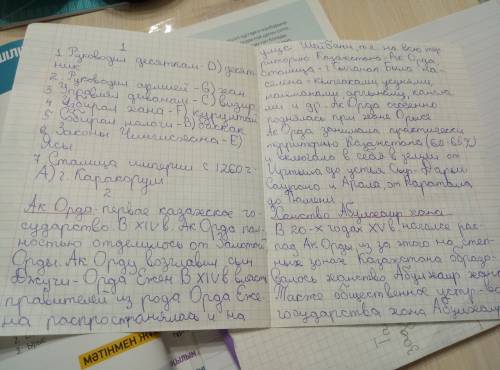 1
1. Руководил десятками-D) десят
ник
2. Руководил армией-G) хан
3. Управлял диваном-C) визир
4. Избирал хана-F) курултай
5 Собирал налоги-B) баскак
6. Законы Чингисхана-E)
Ясы
7. Столица империи с 1260 г-
A) г Каракорум
2
Ак Орда-первое казахское го-
сударство. В XIV в Ак Орда пол
ностью отделилось от Золотой
Орды. Ак Орду возглавил сын
Джучи-Орда Ежен В XIV в власть
правителей из рода Орда Еже
на распространялась и на
улус Шейбани, т.е на всю тер
риторию Казахстана. Ак Орда
столица-г Сыгнак Была на-
селена-кыпчаками, уйсунями,
найманами, аргынами, канглы
ми и др. Ак Орда особенно
поднялась при хане Орысе
Ак Орда занимала практически
территорию Казахстана (60-65%)
и включала в себя в земли от
Иртыша до устья Сыр-Дарьи
Сауран и Арала, от Каратала,
до Тюмени
Ханство Абулхаир хана
В 20-х годах XV в начался рас-
пад Ак Орды из за этого на степ-
ных зонах Казахстана образо-
валось ханство Абулхаир хана
общественное устр-во
государства хана Абулхаир
МӘТІНМЕН